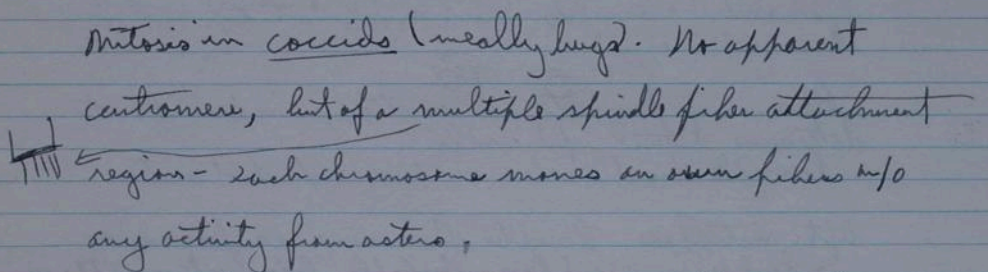 Mitosis in coccids (meally bugs). No apparent
centromere, but of a multiple spindle fiber attachment
region - Each chromosome moves on own fibers w/o
any activity from asters.